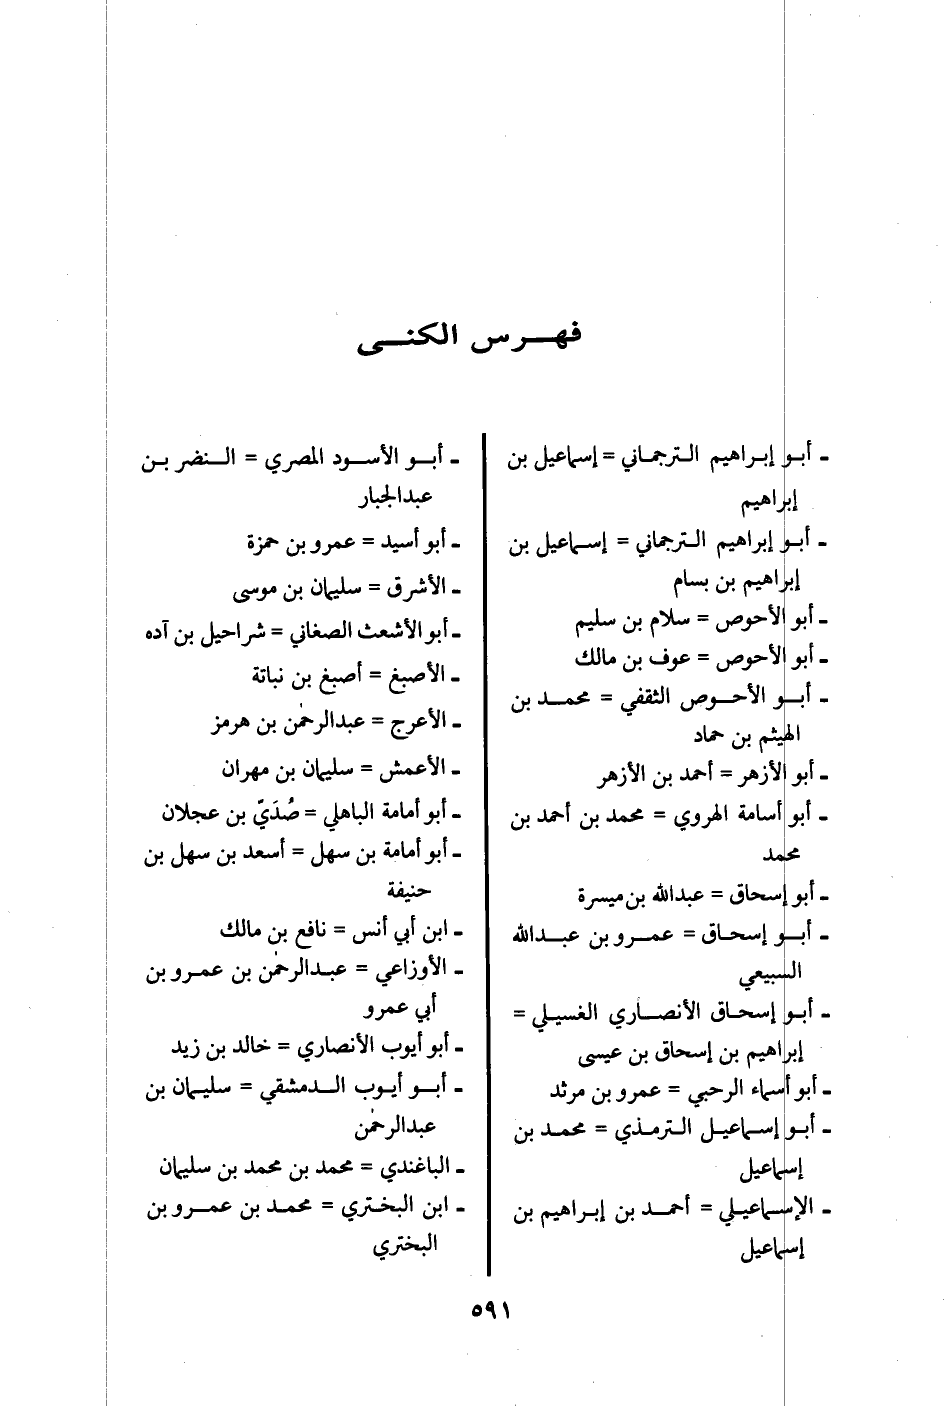 فهرس الكنى
- أبو إبراهيم الترجماني = إسماعيل بن
إبراهيم
- أبو إبراهيم الترجماني = إسماعيل بن
إبراهيم بن بسام
- أبو الأحوص = سلام بن سليم
- أبو الأحوص = عوف بن مالك
- أبو الأحوص الثقفي = محمد بن
الهيثم بن حماد
- أبو الأزهر = أحمد بن الأزهر
- أبو أسامة الهروي = محمد بن أحمد بن
محمد
- أبو إسحاق = عبدالله بن ميسرة
- أبو إسحاق = عمرو بن عبدالله
السبيعي
- أبو إسحاق الأنصاري الغسيلي =
إبراهيم بن إسحاق بن عيسى
- أبو أسماء الرحبي = عمرو بن مرثد
- أبو إسماعيل الترمذي = محمد بن
إسماعيل
- الإسماعيلي = أحمد بن إبراهيم بن
إسماعيل
- أبو الأسود المصري = النضر بن
عبدالجبار
- أبو أسيد = عمرو بن حمزة
- الأشرق = سليمان بن موسى
- أبو الأشعث الصغاني = شراحيل بن آده
- الأصبغ = أصبغ بن نباتة
- الأعرج = عبدالرحمٰن بن هرمز
- الأعمش = سليمان بن مهران
- أبو أمامة الباهلي = صُدَيّ بن عجلان
- أبو أمامة بن سهل = أسعد بن سهل بن
حنيفة
- ابن أبي أنس = نافع بن مالك
- الأوزاعي = عبدالرحمٰن بن عمرو بن
أبي عمرو
- أبو أيوب الأنصاري = خالد بن زيد
- أبو أيوب الدمشقي = سليمان بن
عبدالرحمٰن
- الباغندي = محمد بن محمد بن سليمان
- ابن البختري = محمد بن عمرو بن
البختري
٥٩١